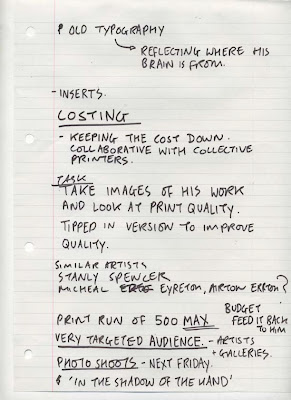 & OLD TYPOGRAPHY
REFLECTING WHERE HIS
BRAIN IS FROM.
- INSERTS.
COSTING
- KEEPING THE COST DOWN.
COLLABORATIVE WITH COLLECTIVE
PRINTERS.
TASK
TAKE IMAGES OF HIS WORK
AND LOOK AT PRINT QUALITY.
TIPPED IN VERSION TO IMPROVE
QUALITY.
SIMILAR ARTISTS
STANLY SPENCER
MICHEAL EYRETON, AIRTON ERTON?
BUDGET
PRINT RUN OF 500 MAX FEED IT BACK
TO HIM
VERY TARGETED AUDIENCE. - ARTISTS
+ GALLERIES.
PHOTO SHOOTS - NEXT FRIDAY.
& 'IN THE SHADOW OF THE HAND'